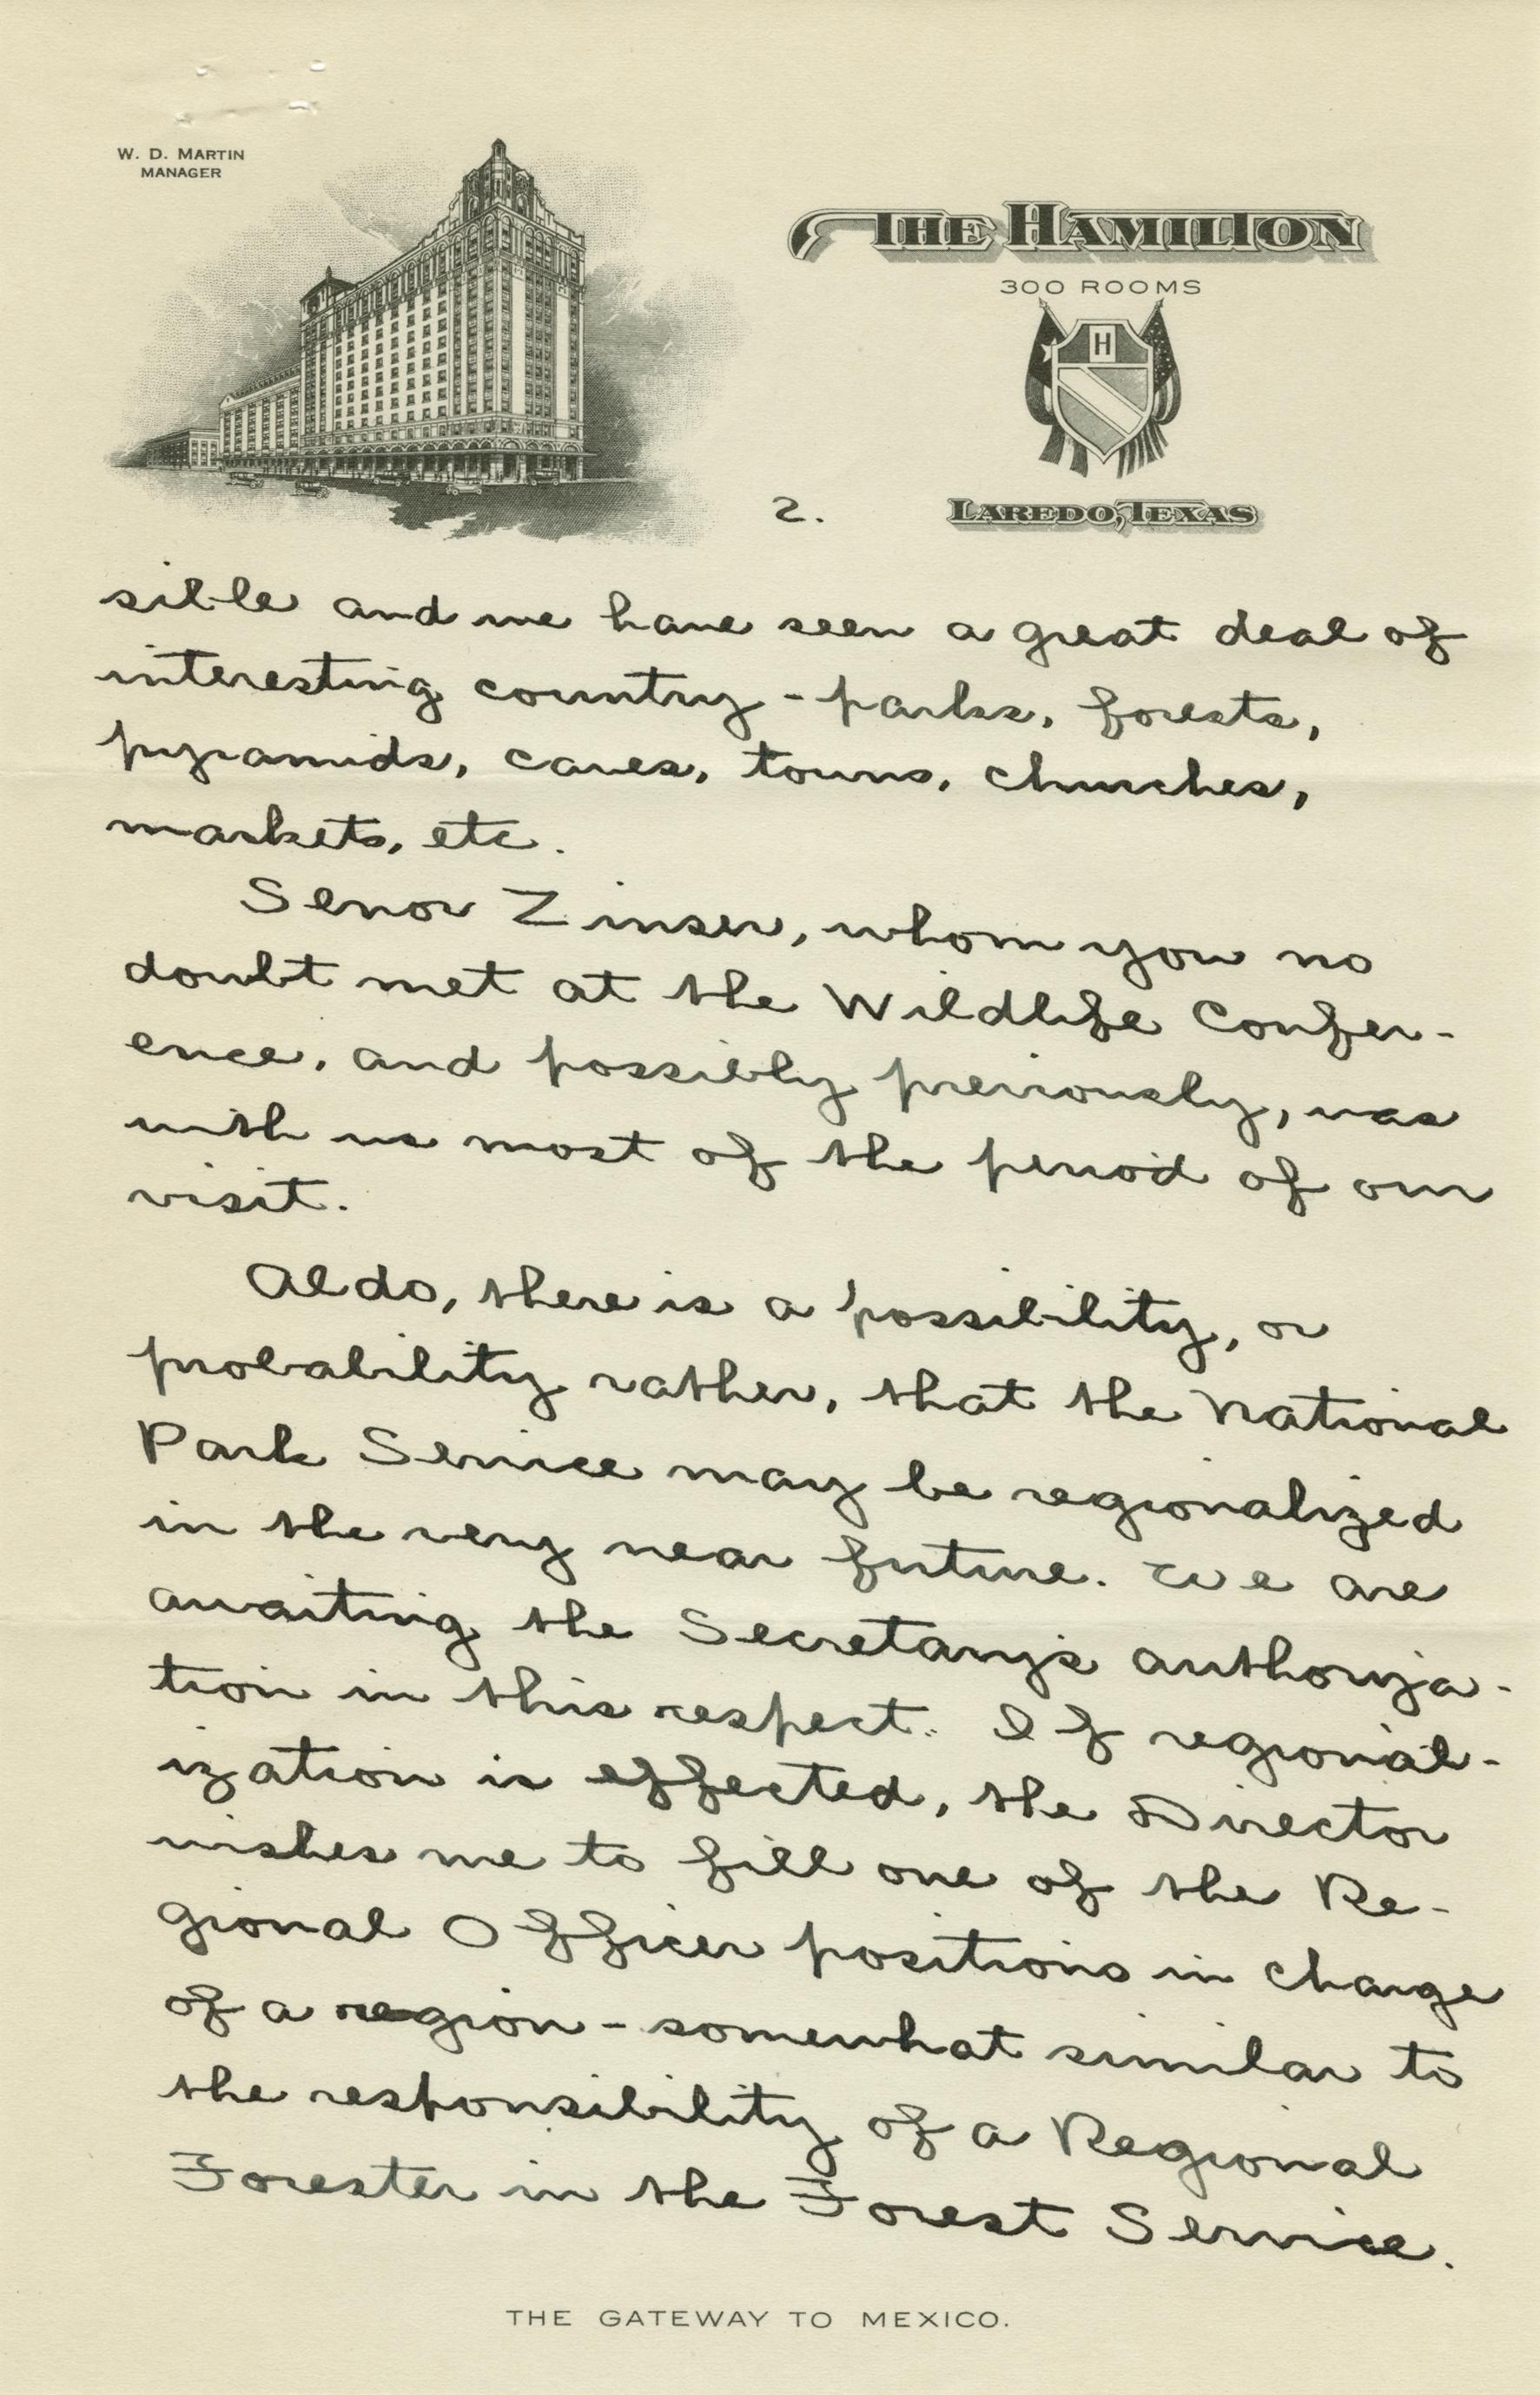 W. D. MARTIN
MANAGER
THE HAMILTON
300 ROOMS
H
LAREDO, TEXAS
2.
sible and we have seen a great deal of
interesting country - parks, forests,
pyramids, caves, towns, churches,
markets, etc.
Senor Zinser, whom you no
doubt met at the Wildlife Confer-
ence, and possibly previously, was
with us most of the period of our
visit.
Aldo, there is a possibility, or
probability rather, that the National
Park Service may be regionalized
in the very near future. We are
awaiting the Secretary's authoriza-
tion in this respect. If regional-
ization is effected, the Director
wishes me to fill one of the Re-
gional Officer positions in charge
of a region - somewhat similar to
the responsibility of a Regional
Forester in the Forest Service.
THE GATEWAY TO MEXICO.